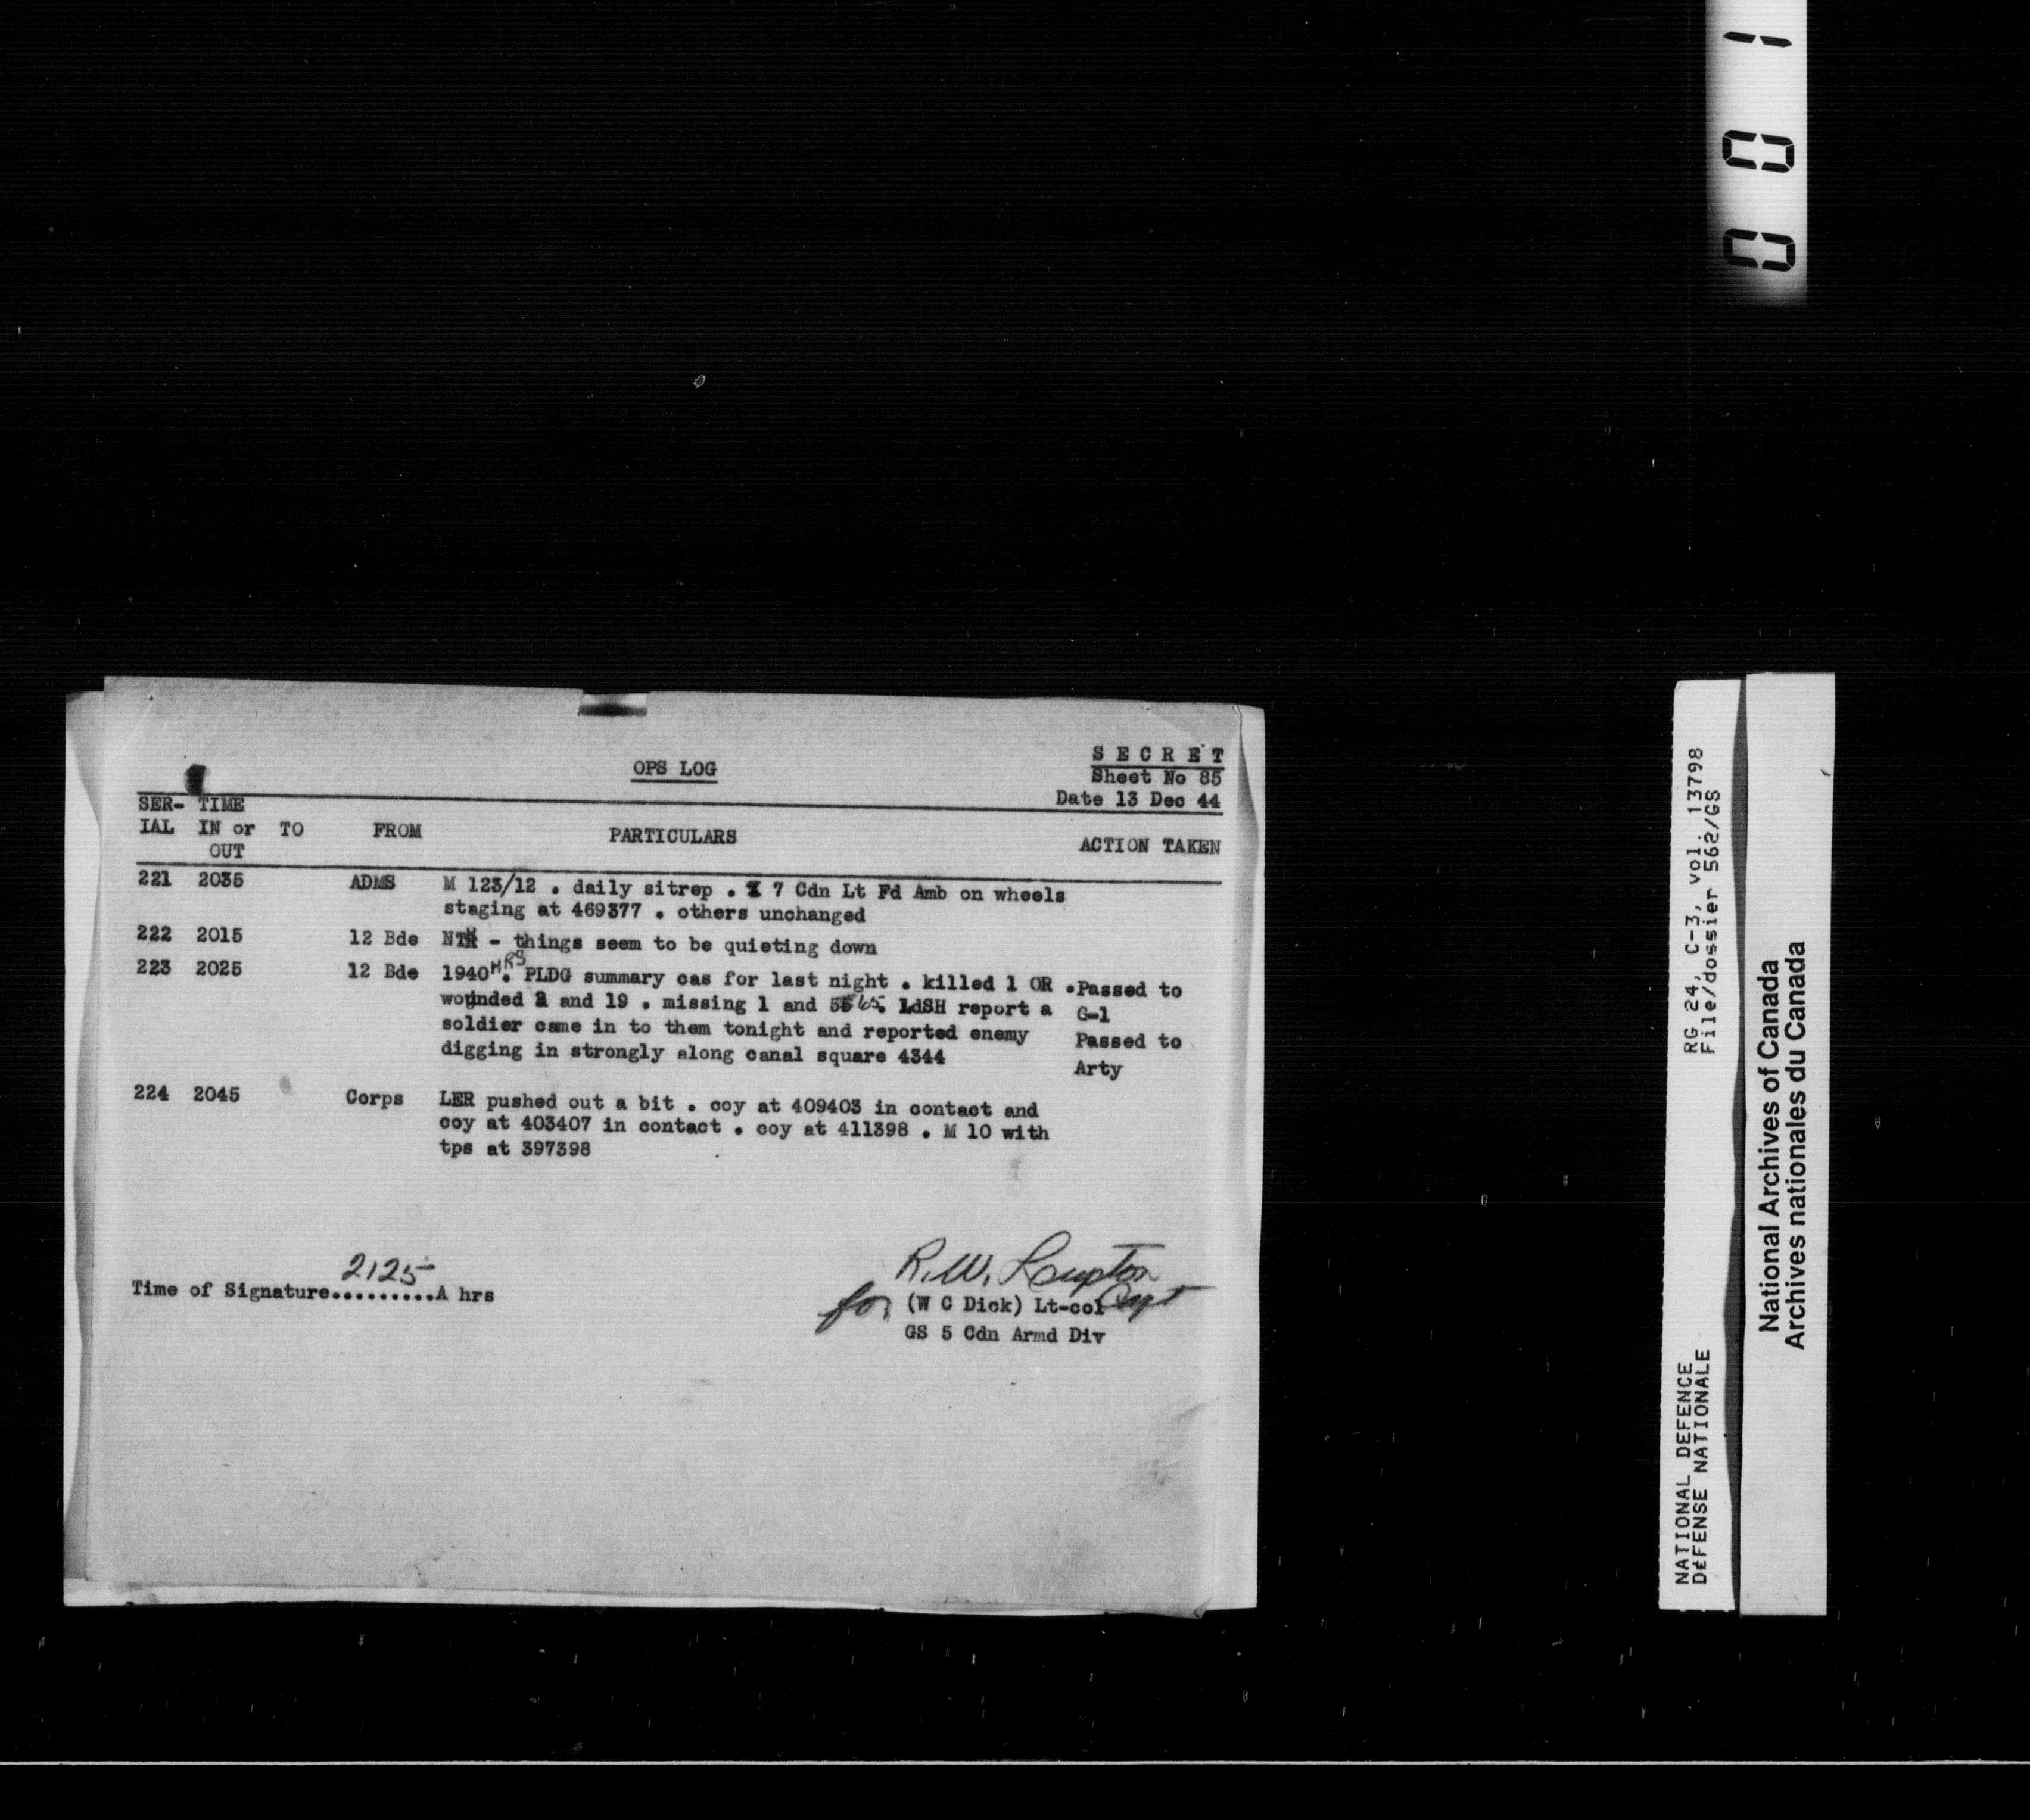 001
SECRET
OPS LOG
Sheet No 85
Date 13 Dec 44
SER- TIME
IAL IN or TO FROM PARTICULARS ACTION TAKEN
OUT
221 2035 ADMS M 123/12 . daily sitrep . 7 Cdn Lt Fd Amb on wheels
staging at 469377 . others unchanged
222 2015 12 Bde NTR - things seem to be quieting down
223 2025 12 Bde 1940 HRS. PLDG summary cas for last night . killed 1 OR . Passed to
wounded 2 and 19 . missing 1 and 65. LdSH report a G-1
soldier came in to them tonight and reported enemy Passed to
digging in strongly along canal square 4344 Arty
224 2045 Corps LER pushed out a bit . coy at 409403 in contact and
coy at 403407 in contact . coy at 411398 . M 10 with
tps at 397398
R.W. Capt
Time of Signature....2125.....A hrs
for (W C Dick) Lt-col
GS 5 Cdn Armd Div
RG 24, C-3, vol. 13798
File/dossier 562/GS
NATIONAL DEFENCE
DéFENSE NATIONALE
National Archives of Canada
Archives nationales du Canada